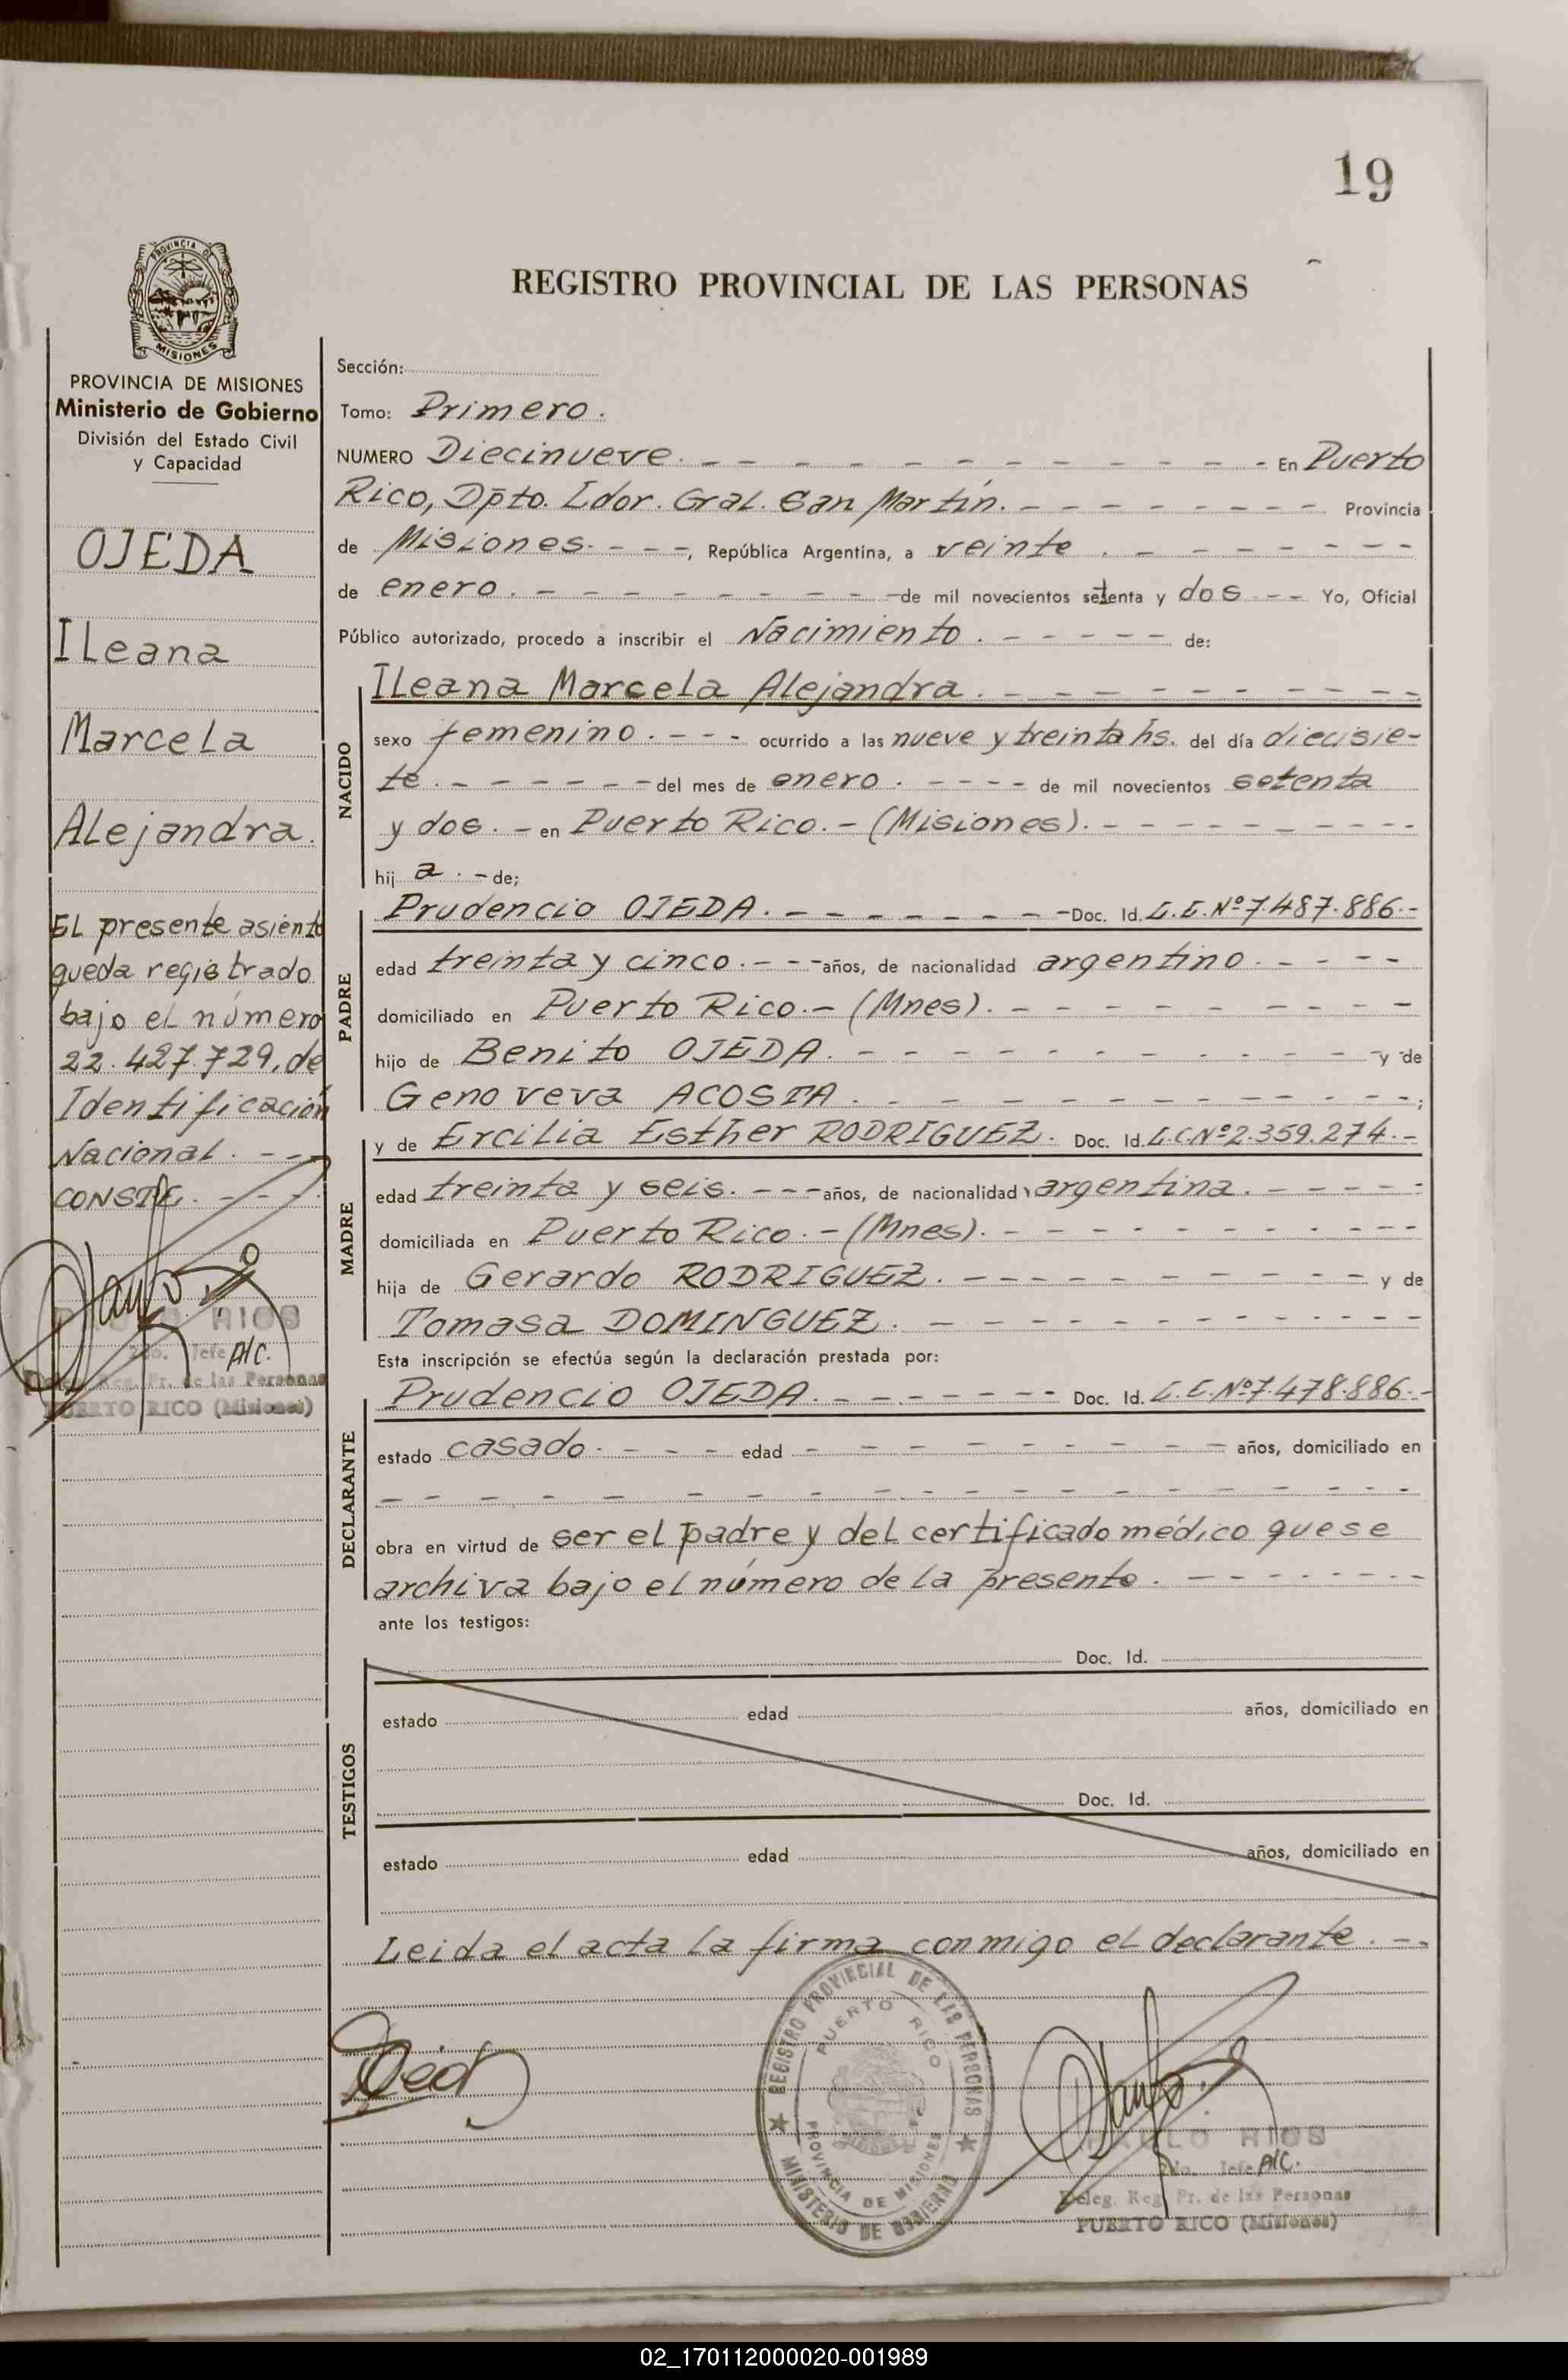 19
REGISTRO PROVINCIAL DE LAS PERSONAS
PROVINCIA DE MISIONES
PROVINCIA DE MISIONES
Ministerio de Gobierno
División del Estado Civil
y Capacidad
OJEDA
ILeana
Marcela
ALejandra.
EL presente asiento
queda registrado
bajo el número
22.427.729, de
Identificación
Nacional. - - -
CONSTE. - - -
RIOS
2do. Jefe A/C.
Deleg. Reg. Pr. de las Personas
PUERTO RICO (Misiones)
Sección:
Tomo: Primero.
NUMERO Diecinueve. - - - - - - - - - - - En Puerto
Rico, Dpto. Ldor. Gral. San Martín. - - - - - - - - Provincia
de Misiones. - - -, República Argentina, a veinte. - - - - - - -
de enero. - - - - - - - - - de mil novecientos setenta y dos - - - Yo, Oficial
Público autorizado, procedo a inscribir el Nacimiento. - - - - - de:
NACIDO
ILeana Marcela Alejandra. - - - - - - - - - -
sexo femenino. - - - ocurrido a las nueve y treinta hs. del día diecisie-
te. - - - - - - del mes de enero. - - - - de mil novecientos setenta
y dos. - en Puerto Rico. - (Misiones). - - - - - - - - - -
hij a. - de;
PADRE
Prudencio OJEDA. - - - - - - - Doc. Id. L.E. Nº 7.487.886.-
edad treinta y cinco. - - - años, de nacionalidad argentino. - - - -
domiciliado en Puerto Rico. - (Mnes). - - - - - - - - -
hijo de Benito OJEDA. - - - - - - - - - - - y de
Genoveva ACOSTA. - - - - - - - - - - - -;
MADRE
y de Ercilia Esther RODRIGUEZ. Doc. Id. L.C. Nº 2.359.274.-
edad treinta y seis. - - - años, de nacionalidad argentina. - - - - -
domiciliada en Puerto Rico. - (Mnes). - - - - - - - - - -
hija de Gerardo RODRIGUEZ. - - - - - - - - - - y de
Tomasa DOMINGUEZ. - - - - - - - - - - - -
Esta inscripción se efectúa según la declaración prestada por:
DECLARANTE
Prudencio OJEDA. - - - - - - - Doc. Id. L.E. Nº 7.478.886.-
estado casado. - - - - edad - - - - - - - - años, domiciliado en
- - - - - - - - - - - - - - - - - - - -
obra en virtud de ser el padre y del certificado médico que se
archiva bajo el número de la presente. - - - - - - - -
ante los testigos:
TESTIGOS
Doc. Id.
estado edad años, domiciliado en
Doc. Id.
estado edad años, domiciliado en
Leida el acta la firma conmigo el declarante. - -
REGISTRO PROVINCIAL DE LAS PERSONAS
PUERTO RICO
PROVINCIA DE MISIONES
MINISTERIO DE GOBIERNO
RIOS
2do. Jefe A/C.
Deleg. Reg. Pr. de las Personas
PUERTO RICO (Misiones)
02_170112000020-001989